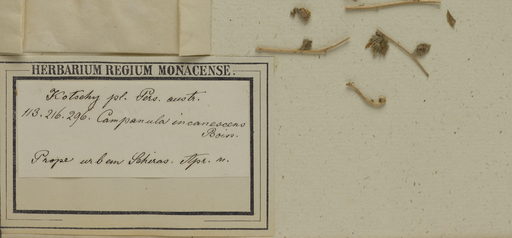 HERBARIUM REGIUM MONACENSE.
Kotschy pl. Pers. austr.
113. 216. 296. Campanula incanescens
Boiss.
Prope urbem Schiras. Apr. n.